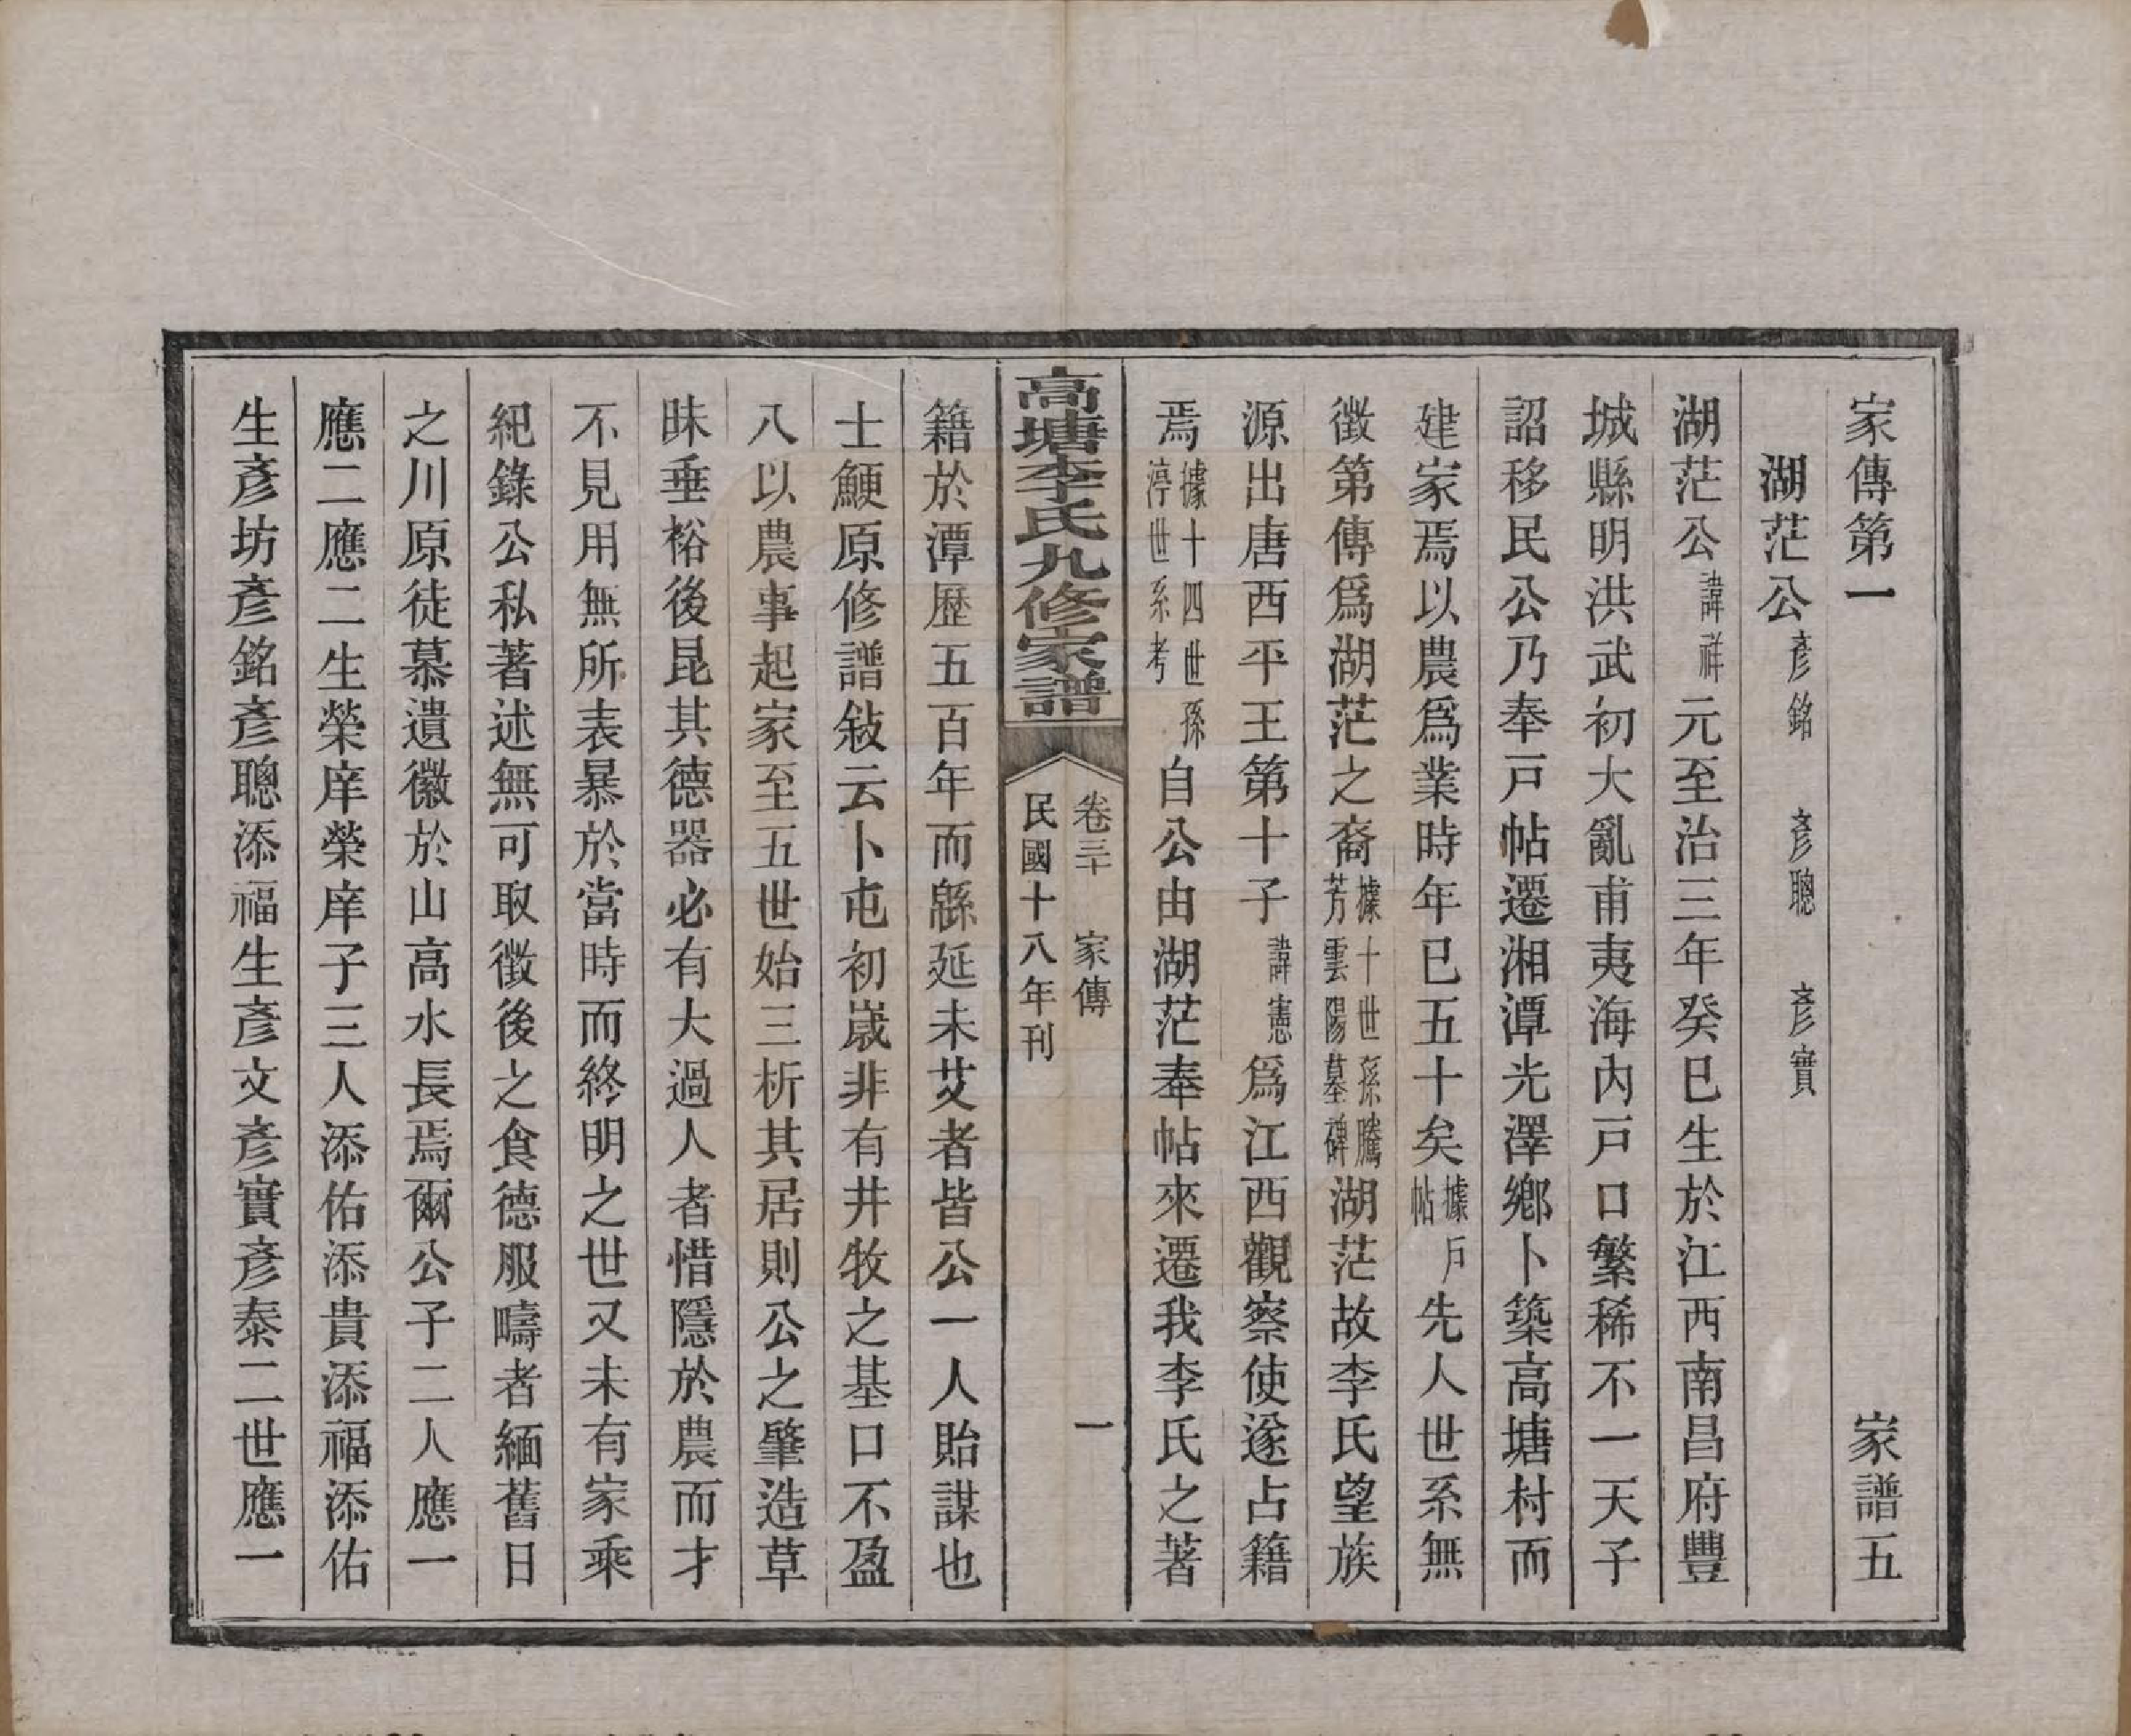 家傳第一　家譜五
湖茫公彥銘　彥聰　彥實
湖茫公諱祥元至治三年癸巳生於江西南昌府豐
城縣明洪武初大亂甫夷海內戸口繁稀不一天子
詔移民公乃奉戸帖遷湘潭光澤鄉卜築高塘村而
建家焉以農爲業時年已五十矣據戸帖先人世系無
徵第傳爲湖茫之裔據十世孫騰芳雲陽墓碑湖茫故李氏望族
源出唐西平王第十子諱憲爲江西觀察使遂占籍
焉據十四世孫渟世系考自公由湖茫奉帖來遷我李氏之著
高塘李氏九修家譜
卷三十　家傳　一
民國十八年刊
籍於潭歷五百年而緜延未艾者皆公一人貽謀也
士鯁原修譜敍云卜屯初嵗非有井牧之基口不盈
八以農事起家至五世始三析其居則公之肇造草
昧垂裕後昆其德器必有大過人者惜隱於農而才
不見用無所表暴於當時而終明之世又未有家乘
紀錄公私著述無可取徵後之食德服疇者緬舊日
之川原徒慕遺徽於山高水長焉爾公子二人應一
應二應二生榮庠榮庠子三人添佑添貴添福添佑
生彥坊彥銘彥聰添福生彥文彥實彥泰二世應一